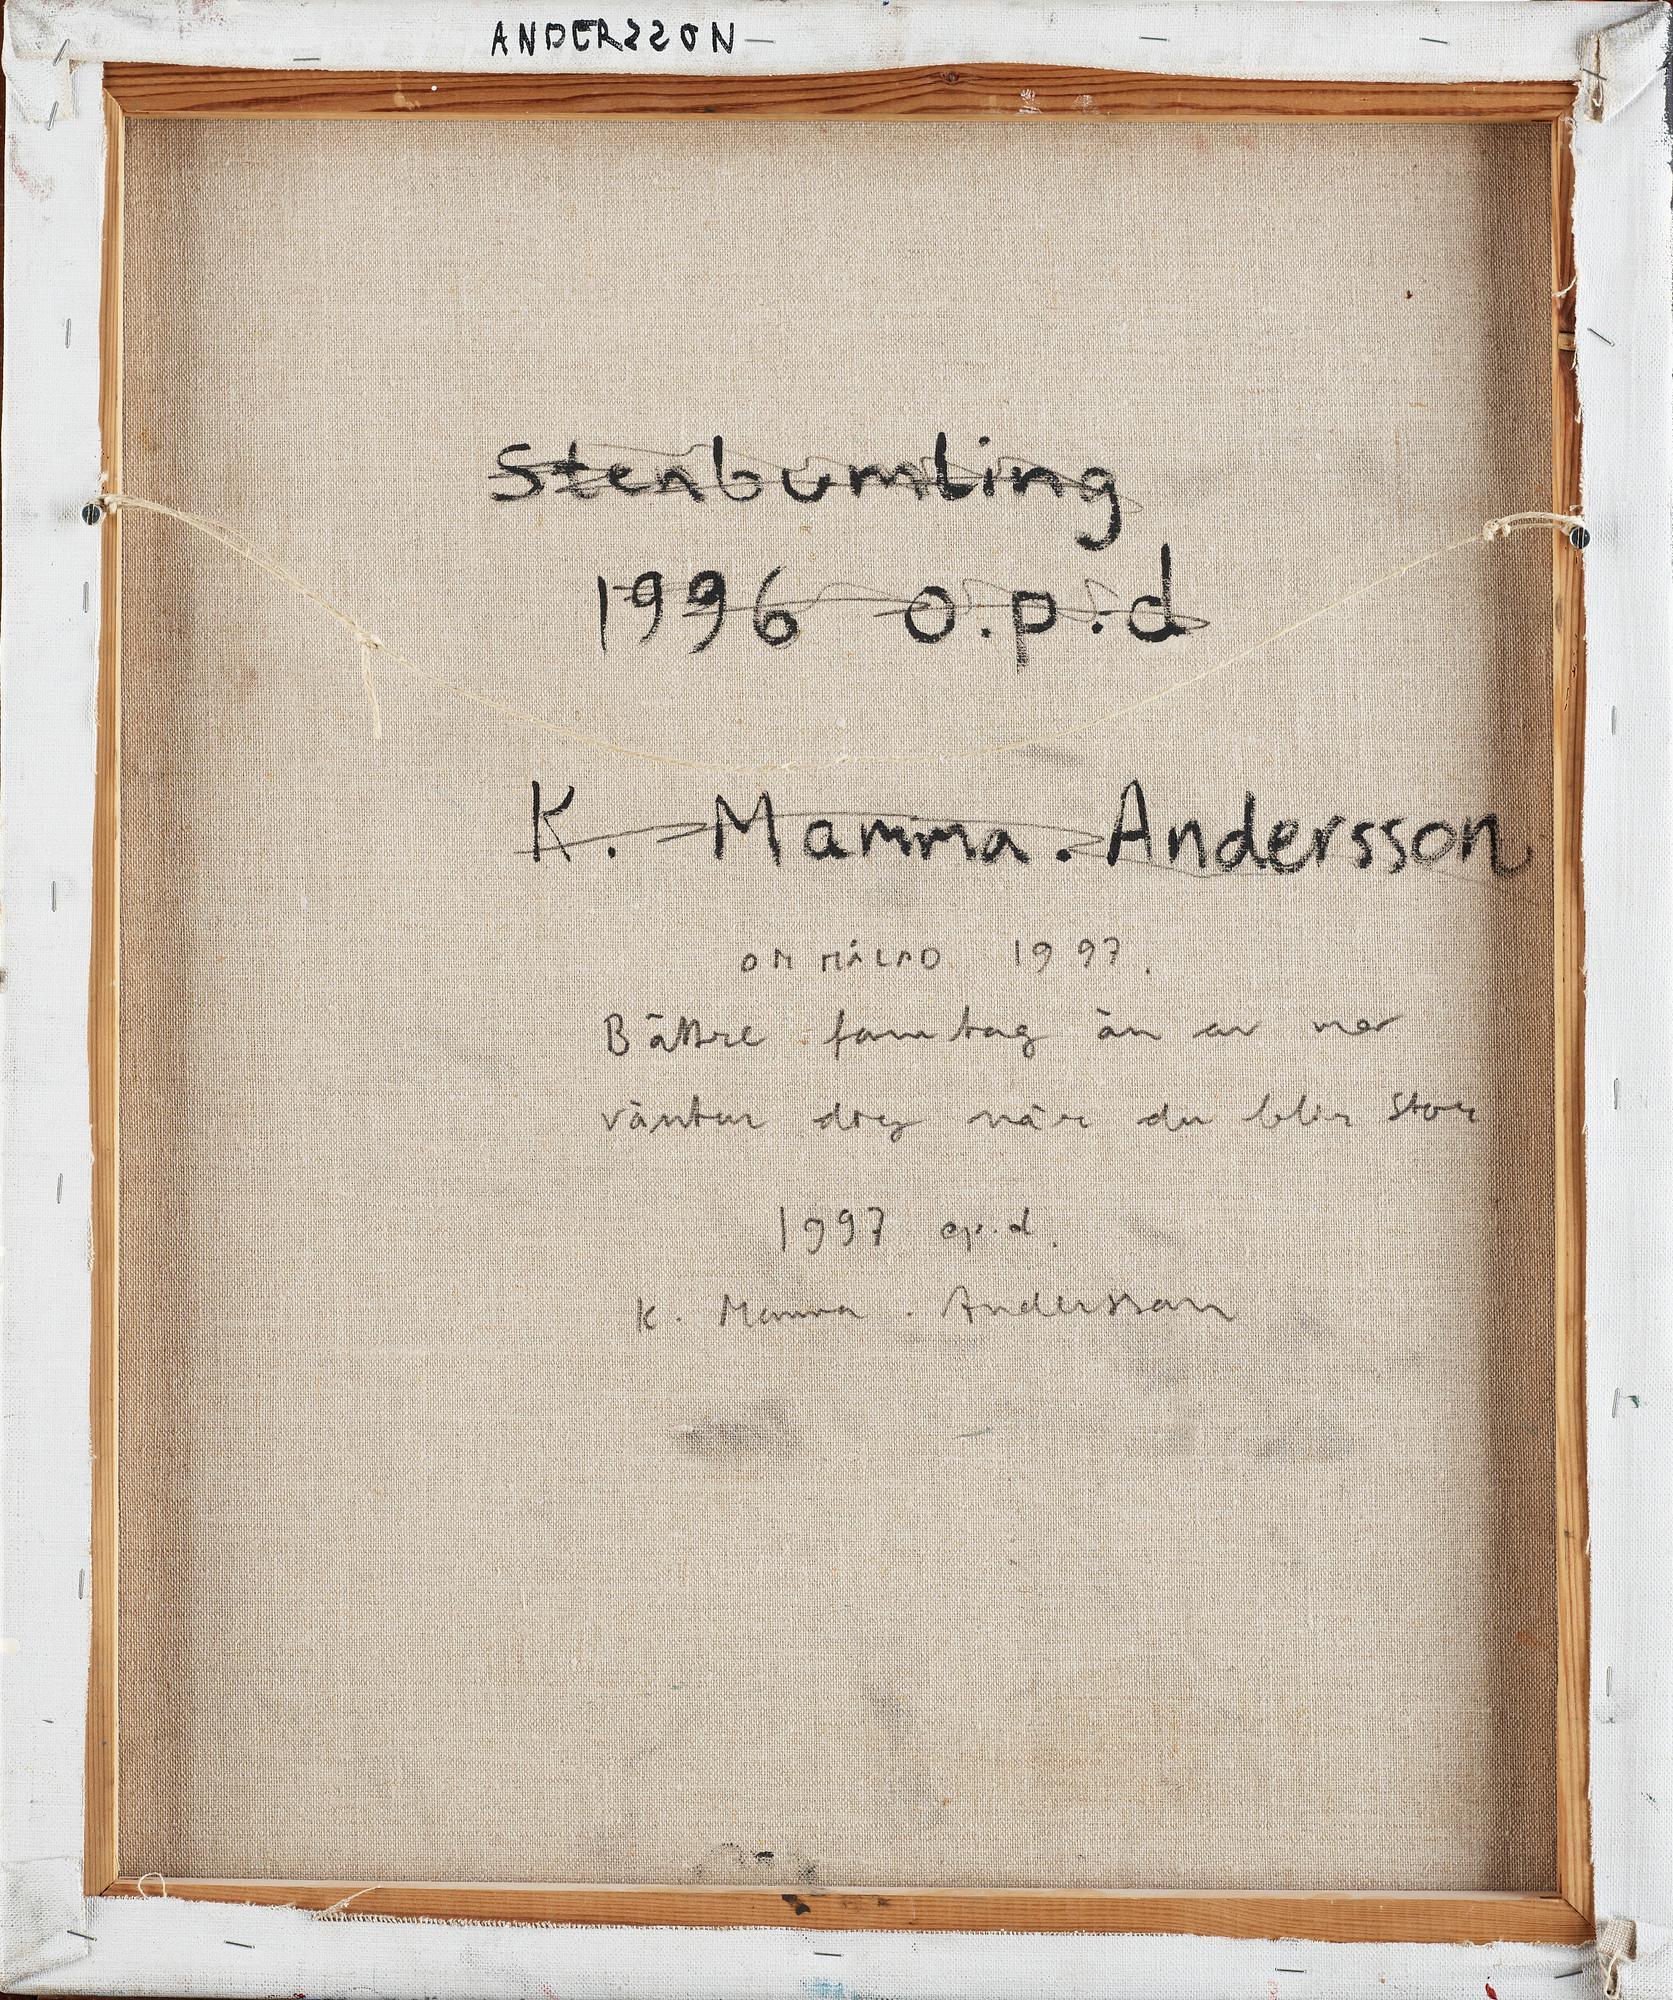 ANDERSSON
Stenbumling
1996 o.p.d
K. Mamma. Andersson
OMMÅLAD 1997.
Bättre famntag än av mor
väntar dig när du blir stor
1997 op.d.
K. Mamma. Andersson